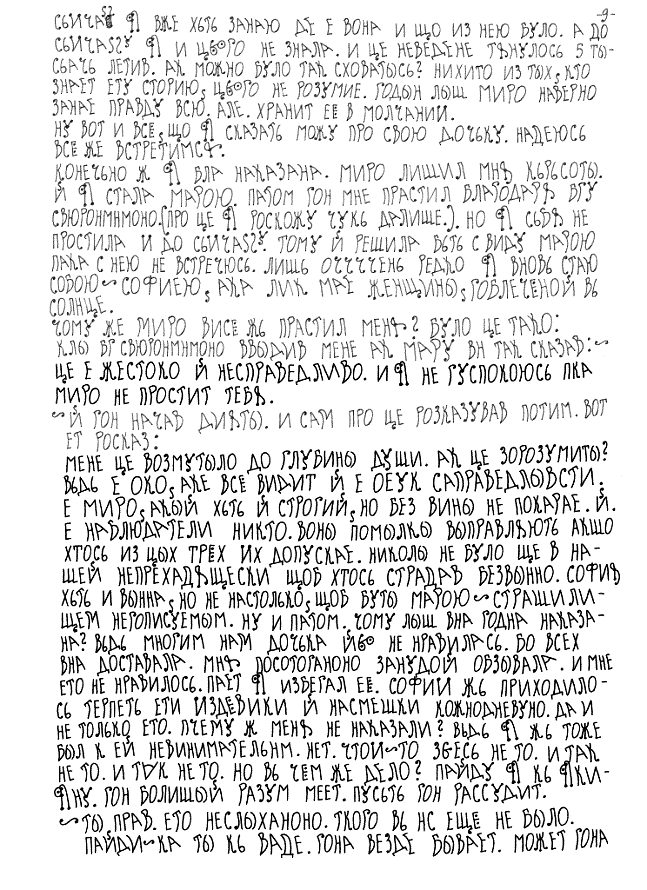 -9-
СЫЧАЅ Я ВЖЕ ХЕТЬ ЗАНАЮ ДЕ Е ВОНА И ЩО ИЗ НЕЮ БУЛО. А ДО
И НЕ ЗНАЛА. И ЦЕ НЕВЕДЕНЕ ТЯНУЛОСЬ 5 ТЫ-
СЬАЧЬ ЛЕТИВ. АК МОЖНО БУЛО ТАК СХОВАТЫСЬ? НИХИТО ИЗ ТЫХ, КТО
ЗНАЕТ ЕТУ СТОРИЮ, НЕ РОЗУМИЕ. ГОДЫН ЛЫШ МИРО НАВЕРНО
ЗАНАЕ ПРАВДУ ВСЮ. АЛЕ. ХРАНИТ ЕЕ В МОЛЧАНИИ.
НУ ВОТ И ВСЁ, ЩО Я СКАЗАТЬ МОЖУ ПРО СВОЮ ДОЧЬКУ. НАДЕЮСЬ
ВСЁ ЖЕ ВСТРЕТИМСЯ.
КОНЕЧЬНО Ж Я БЛА НАКАЗАНА. МИРО ЛИШИЛ МНЯ КЬРЬСОТЫ.
Й Я СТАЛА МАРОЮ. ПАТОМ ГОН МНЕ ПРАСТИЛ БЛАГОДАРЯ БГУ
СВЮРОНМНМОНО.(ПРО ЦЕ Я РОСКОЖУ ЧУКЬ ДАЛИЩЕ.). НО Я СЬБЯ НЕ
ПРОСТИЛА И ДО ТОМУ Й РЕШИЛА БЬТЬ С ВИДУ МАРОЮ
ПАКА С НЕЮ НЕ ВСТРЕЧЮСЬ. ЛИШЬ ОЧЧЧЧЕНЬ РЕДКО Я ВНОВЬ СТАЮ
СОБОЮ~СОФИЕЮ, АКА ЛИК МАЕ ЖЕНЩИНЫ, ГОБЛЕЧЕНОЙ ВЬ
СОЛНЦЕ.
ЧОМУ ЖЕ МИРО ВИСЕ ЖЬ ПРАСТИЛ МЕНЯ? БУЛО ЦЕ ТАКО:
КЛЫ БГ СВЮРОНМНМОНО ВВЫДИВ МЕНЕ АК МАРУ ВН ТАК СКАЗАВ:~
ЦЕ Е ЖЕСТОКО Й НЕСПРАВЕДЛИВО. И Я НЕ ГУСПОКОЮСЬ ПКА
МИРО НЕ ПРОСТИТ ТЕБЯ.
~Й ГОН НАЧАВ ДИЯТЫ. И САМ ПРО ЦЕ РОЗКАЗУВАВ ПОТИМ. ВОТ
ЕТ РОСКАЗ:
МЕНЕ ЦЕ ВОЗМУТЫЛО ДО ГЛУБИНЫ ДУШИ. АК ЦЕ ЗОРОЗУМИТЫ?
ВЬДЬ Е ОКО, АКЕ ВСЁ ВИДИТ Й Е ОЕУК САПРАВЕДЛЫВСТИ.
Е МИРО, АКЫЙ ХЬТЬ Й СТРОГИЙ, НО БЕЗ ВИНЫ НЕ ПОКАРАЕ. Й.
Е НАБЛЮДАТЕЛИ НИКТО. ВОНЫ ПОМЫЛКЫ ВЫПРАВЛЯЮТЬ АКШО
ХТОСЬ ИЗ ЦЫХ ТРЁХ ИХ ДОПУСКАЕ. НИКОЛЫ НЕ БУЛО ЩЕ В НА-
ШЕЙ НЕПРЕХАДЯЩЕСКИ ЩОБ ХТОСЬ СТРАДАВ БЕЗВЫННО. СОФИЯ
ХЬТЬ И ВЫННА, НО НЕ НАСТОЛЬКО, ЩОБ БУТЫ МАРОЮ~СТРАШИЛИ-
ЩЕМ НЕГОПИСУЕМЫМ. НУ И ПАТОМ, ЧОМУ ЛЫШ ВНА ГОДНА НАКАЗА-
НА? ВЬДЬ МНОГИМ НАМ ДОЧЬКА НЕ НРАВИЛАСЬ. БО ВСЕХ
ВНА ДОСТАВАЛА. МНЯ ПОСОТОГАНОНО ЗАНУДОЙ ОБЗЫВАЛА. И МНЕ
ЕТО НЕ НРАВИЛОСЬ. ПАЕТ Я ИЗБЕГАЛ ЕЁ. СОФИИ ЖЬ ПРИХОДИЛО-
СЬ ТЕРПЕТЬ ЕТИ ИЗДЕВИКИ Й НАСМЕШКИ КОЖНОДНЕВУНО. ДА И
НЕ ТОЛЬКО ЕТО. ПЧЕМУ Ж МЕНЯ НЕ НАКАЗАЛИ? ВЬДЬ Я ЖЬ ТОЖЕ
БЫЛ К ЕЙ НЕВИНИМАТЕЛЬНМ. НЕТ. ЧТОИ~ТО ЗДЕСЬ НЕ ТО. И ТАК
НЕ ТО. И ТАК НЕ ТО. НО ВЬ ЧЁМ ЖЕ ДЕЛО? ПАЙДУ Я КЬ ЯКИ-
ЯНУ. ГОН БОЛИШЫЙ РАЗУМ МЕЕТ. ПУСЬТЬ ГОН РАССУДИТ.
~ТЫ, ПРАВ. ЕТО НЕСЛЫХАНОНО. ТКОГО ВЬ НС ЕЩЕ НЕ БЫЛО.
ПАЙДИ~КА ТЫ КЬ ВАДЕ. ГОНА ВЕЗДЕ БЫВАЕТ. МОЖЕТ ГОНА